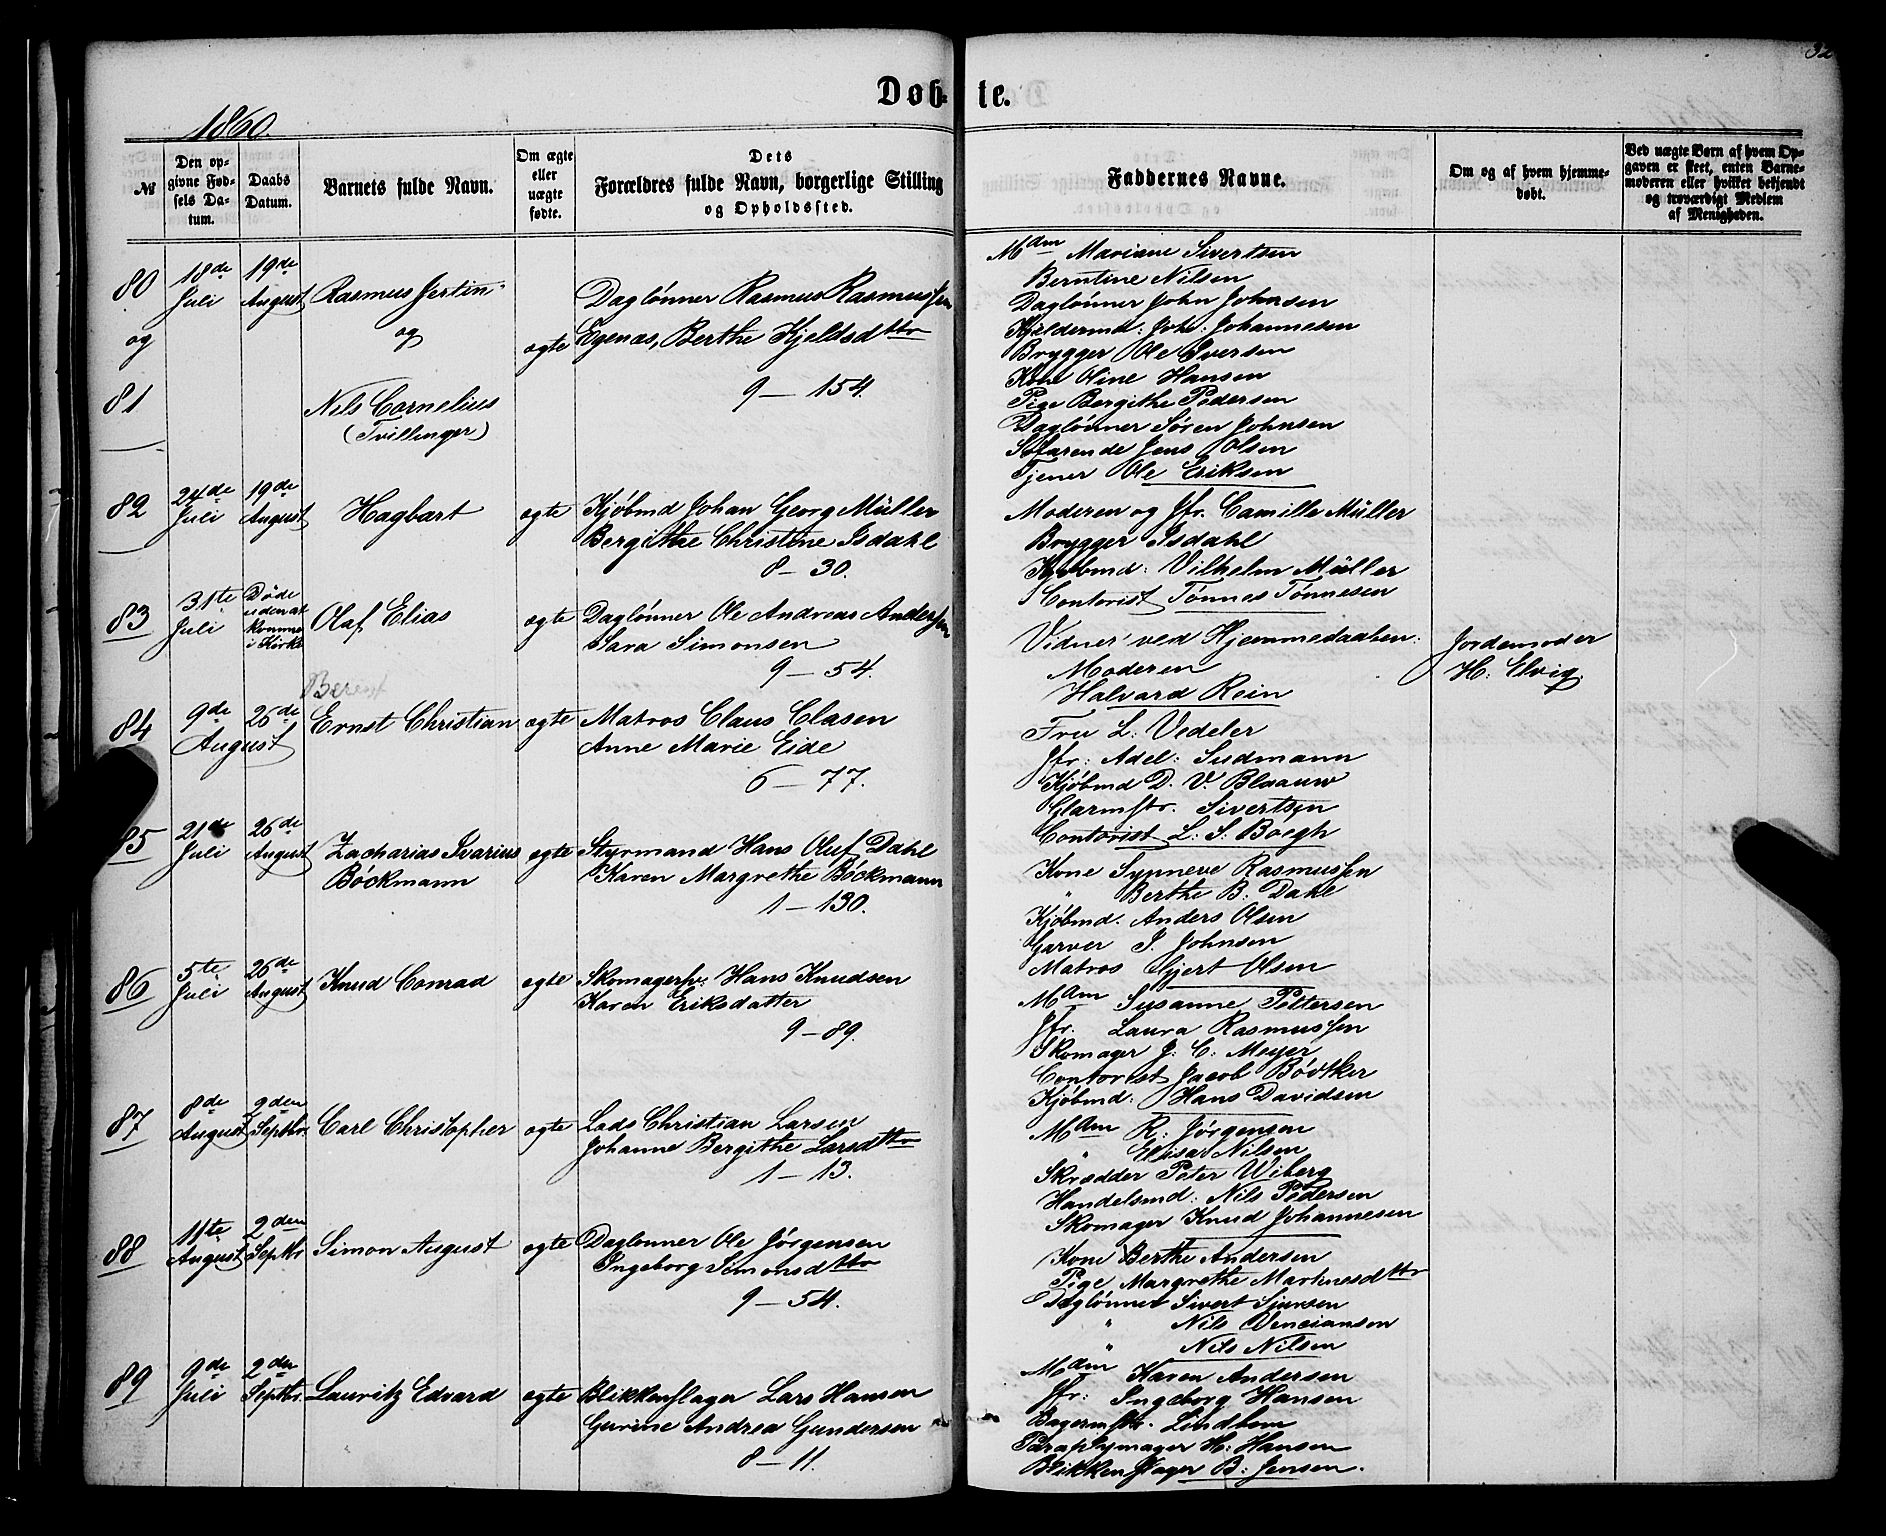 32
Døb- te.
1860.
№
Den op-
givne Fød-
sels Da-
tum.
Daabs
Datum.
Barnets fulde Navn.
Om ægte
eller
uægte
fødte.
Dets
Forældres fulde Navn, borgerlige Stilling
og Opholdssted.
Faddernes Navne.
Om og af hvem hjemme-
døbt.
Ved uægte Børn af hvem Op-
gaven er skeet, enten Barne-
moderen eller hvilket bekjendt
og troværdigt Medlem
af Menigheden.
80
og
81
18de
Juli
19de
August
Rasmus Jertin
og
Nils Cornelius
(Tvillinger)
ægte
Daglønner Rasmus Rasmussen
Egenæs, Berthe Kjeldsdttr
9 — 154.
Mdm Mariane Sivertsen
Berntine Nilsen
Daglønner John Johnsen
Kjeldermd: Joh. Johannesen
Brygger Ole Iversen
Kone Oline Hansen
Pige Bergithe Pedersen
Daglønner Sören Johnsen
Söfarende Jens Olsen
Tjener Ole Eriksen
82
24de
Juli
19de
August
Hagbart
ægte
Kjøbmd Johan Georg Müller
Bergithe Christine Isdahl
8 — 30.
Moderen og Jfr. Camilla Müller
Brygger Isdahl
Kjøbmd: Vilhelm Müller
Contorist Tønnes Tønnesen
83
31te
Juli
Døde
uden at
komme
i Kirke
Olaf Elias
ægte
Daglønner Ole Andreas Andersen
Sara Simonsen
9 — 54.
Vidner ved Hjemmedaaben:
Moderen
Halvard Rein
Jordemoder
H: Elvig.
84
9de
26de
August
Berent
Ernst Christian
ægte
Matros Claus Clasen
Anne Marie Eide
6 — 77.
Fru L. Vedeler
Jfr: Adel: Sudmann
Kjøbmd D. V. Blaauw
Glarmstr. Sivertsen
Contorist L. S. Boegh
85
21de
Juli
26de
August
Zacharias Ivarius
Böckmann
ægte
Styrmand Hans Oluf Dahl
Karen Margrethe Böckmann
1 — 130.
Kone Synneve Rasmussen
" Berthe B. Dahl
Kjøbmd. Anders Olsen
Garver J. Johnsen
Matros Gjert Olsen
86
5te
Juli
26de
August
Knud Conrad
ægte
Skomagersv: Hans Knudsen
Karen Eriksdatter
9 — 89.
Mdm Susanne Pettersen
Jfr. Laura Rasmussen
Skomager J: C: Meyer
Contorist Jacob Bödtker
Kjøbmd: Hans Davidsen
87
8de
August
2den
Septbr.
Carl Christopher
ægte
Lods Christian Larsen
Johanne Bergithe Larsdttr
1 — 13.
Mdm R. Jörgensen
" Elisa Nilsen
Skrædder Peter Wiberg
Handelsmd: Nils Pedersen
Skomager Knud Johannesen
88
11te
August
2den
Septbr
Simon August
ægte
Daglønner Ole Jörgensen
Ingeborg Simonsdttr
9 — 54.
Kone Berthe Andersen
Pige Margrethe Markusdttr
Daglønner Sivert Sjursen
" Nils Vinciansen
" Nils Nilsen
89
9de
Juli
2den
Septbr.
Lauritz Edvard
ægte
Blikkenslager Lars Hansen
Gurine Andrea Gundersen
8 — 11.
Mdm Karen Andersen
Jfr: Ingeborg Hansen
Bagermstr. Lindbom
Paraplymager H: Hansen
Blikkenslager B: Jensen.